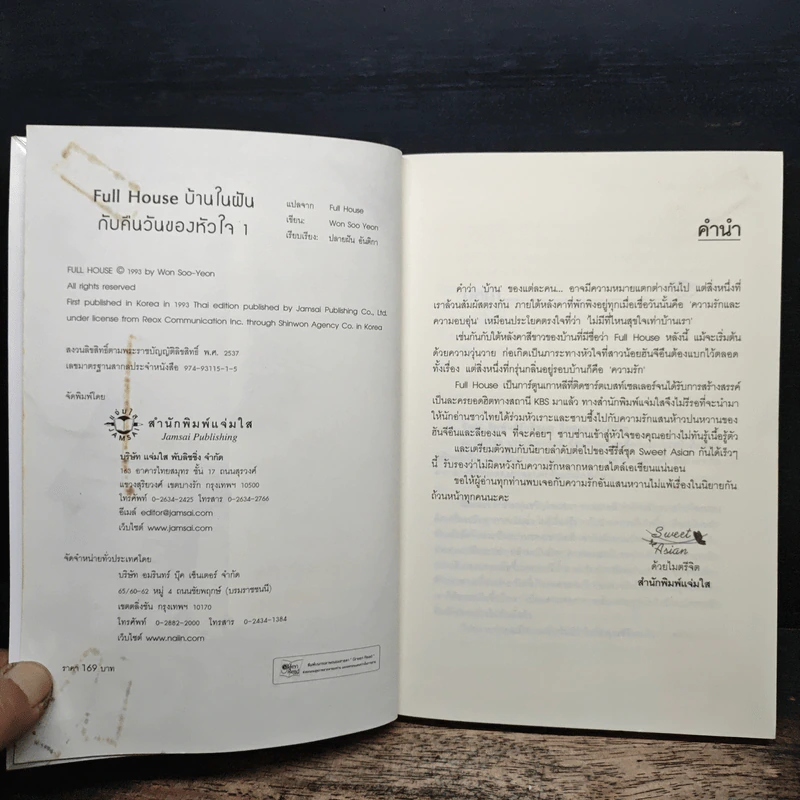 Full House บ้านในฝัน
กับคืนวันของหัวใจ 1
แปลจาก Full House
เขียน: Won Soo Yeon
เรียบเรียง: ปลายฝัน อันติกา
FULL HOUSE © 1993 by Won Soo-Yeon
All rights reserved
First published in Korea in 1993 Thai edition published by Jamsai Publishing Co., Ltd.
under license from Reox Communication Inc. through Shinwon Agency Co. in Korea
สงวนลิขสิทธิ์ตามพระราชบัญญัติลิขสิทธิ์ พ.ศ. 2537
เลขมาตรฐานสากลประจำหนังสือ 974-93115-1-5
จัดพิมพ์โดย
แจ่มใส
JAMSAI
สำนักพิมพ์แจ่มใส
Jamsai Publishing
บริษัท แจ่มใส พับลิชชิ่ง จำกัด
163 อาคารไทยสมุทร ชั้น 17 ถนนสุรวงศ์
แขวงสุริยวงศ์ เขตบางรัก กรุงเทพฯ 10500
โทรศัพท์ 0-2634-2425 โทรสาร 0-2634-2766
อีเมล์ editor@jamsai.com
เว็บไซต์ www.jamsai.com
จัดจำหน่ายทั่วประเทศโดย
บริษัท อมรินทร์ บุ๊ค เซ็นเตอร์ จำกัด
65/60-62 หมู่ 4 ถนนชัยพฤกษ์ (บรมราชชนนี)
เขตตลิ่งชัน กรุงเทพฯ 10170
โทรศัพท์ 0-2882-2000 โทรสาร 0-2434-1384
เว็บไซต์ www.naiin.com
ราคา 169 บาท
คำนำ
คำว่า 'บ้าน' ของแต่ละคน... อาจมีความหมายแตกต่างกันไป แต่สิ่งหนึ่งที่
เราล้วนสัมผัสตรงกัน ภายใต้หลังคาที่พักพิงอยู่ทุกเมื่อเชื่อวันนั้นคือ 'ความรักและ
ความอบอุ่น' เหมือนประโยคตรงใจที่ว่า 'ไม่มีที่ไหนสุขใจเท่าบ้านเรา'
เช่นกันกับใต้หลังคาสีขาวของบ้านที่มีชื่อว่า Full House หลังนี้ แม้จะเริ่มต้น
ด้วยความวุ่นวาย ก่อเกิดเป็นภาระทางหัวใจที่สาวน้อยฮันจีอึนต้องแบกไว้ตลอด
ทั้งเรื่อง แต่สิ่งหนึ่งที่กรุ่นกลิ่นอยู่รอบบ้านก็คือ 'ความรัก'
Full House เป็นการ์ตูนเกาหลีที่ติดชาร์ตเบสท์เซลเลอร์จนได้รับการสร้างสรรค์
เป็นละครยอดฮิตทางสถานี KBS มาแล้ว ทางสำนักพิมพ์แจ่มใสจึงไม่รีรอที่จะนำมา
ให้นักอ่านชาวไทยได้ร่วมหัวเราะและซาบซึ้งไปกับความรักแสนห้าวปนหวานของ
ฮันจีอึนและลียองแจ ที่จะค่อยๆ ซาบซ่านเข้าสู่หัวใจของคุณอย่างไม่ทันรู้เนื้อรู้ตัว
และเตรียมตัวพบกับนิยายลำดับต่อไปของซีรี่ส์ชุด Sweet Asian กันได้เร็วๆ
นี้ รับรองว่าไม่ผิดหวังกับความรักหลากหลายสไตล์เอเชียแน่นอน
ขอให้ผู้อ่านทุกท่านพบเจอกับความรักอันแสนหวานไม่แพ้เรื่องในนิยายกัน
ถ้วนหน้าทุกคนนะคะ
Sweet
Asian
ด้วยไมตรีจิต
สำนักพิมพ์แจ่มใส